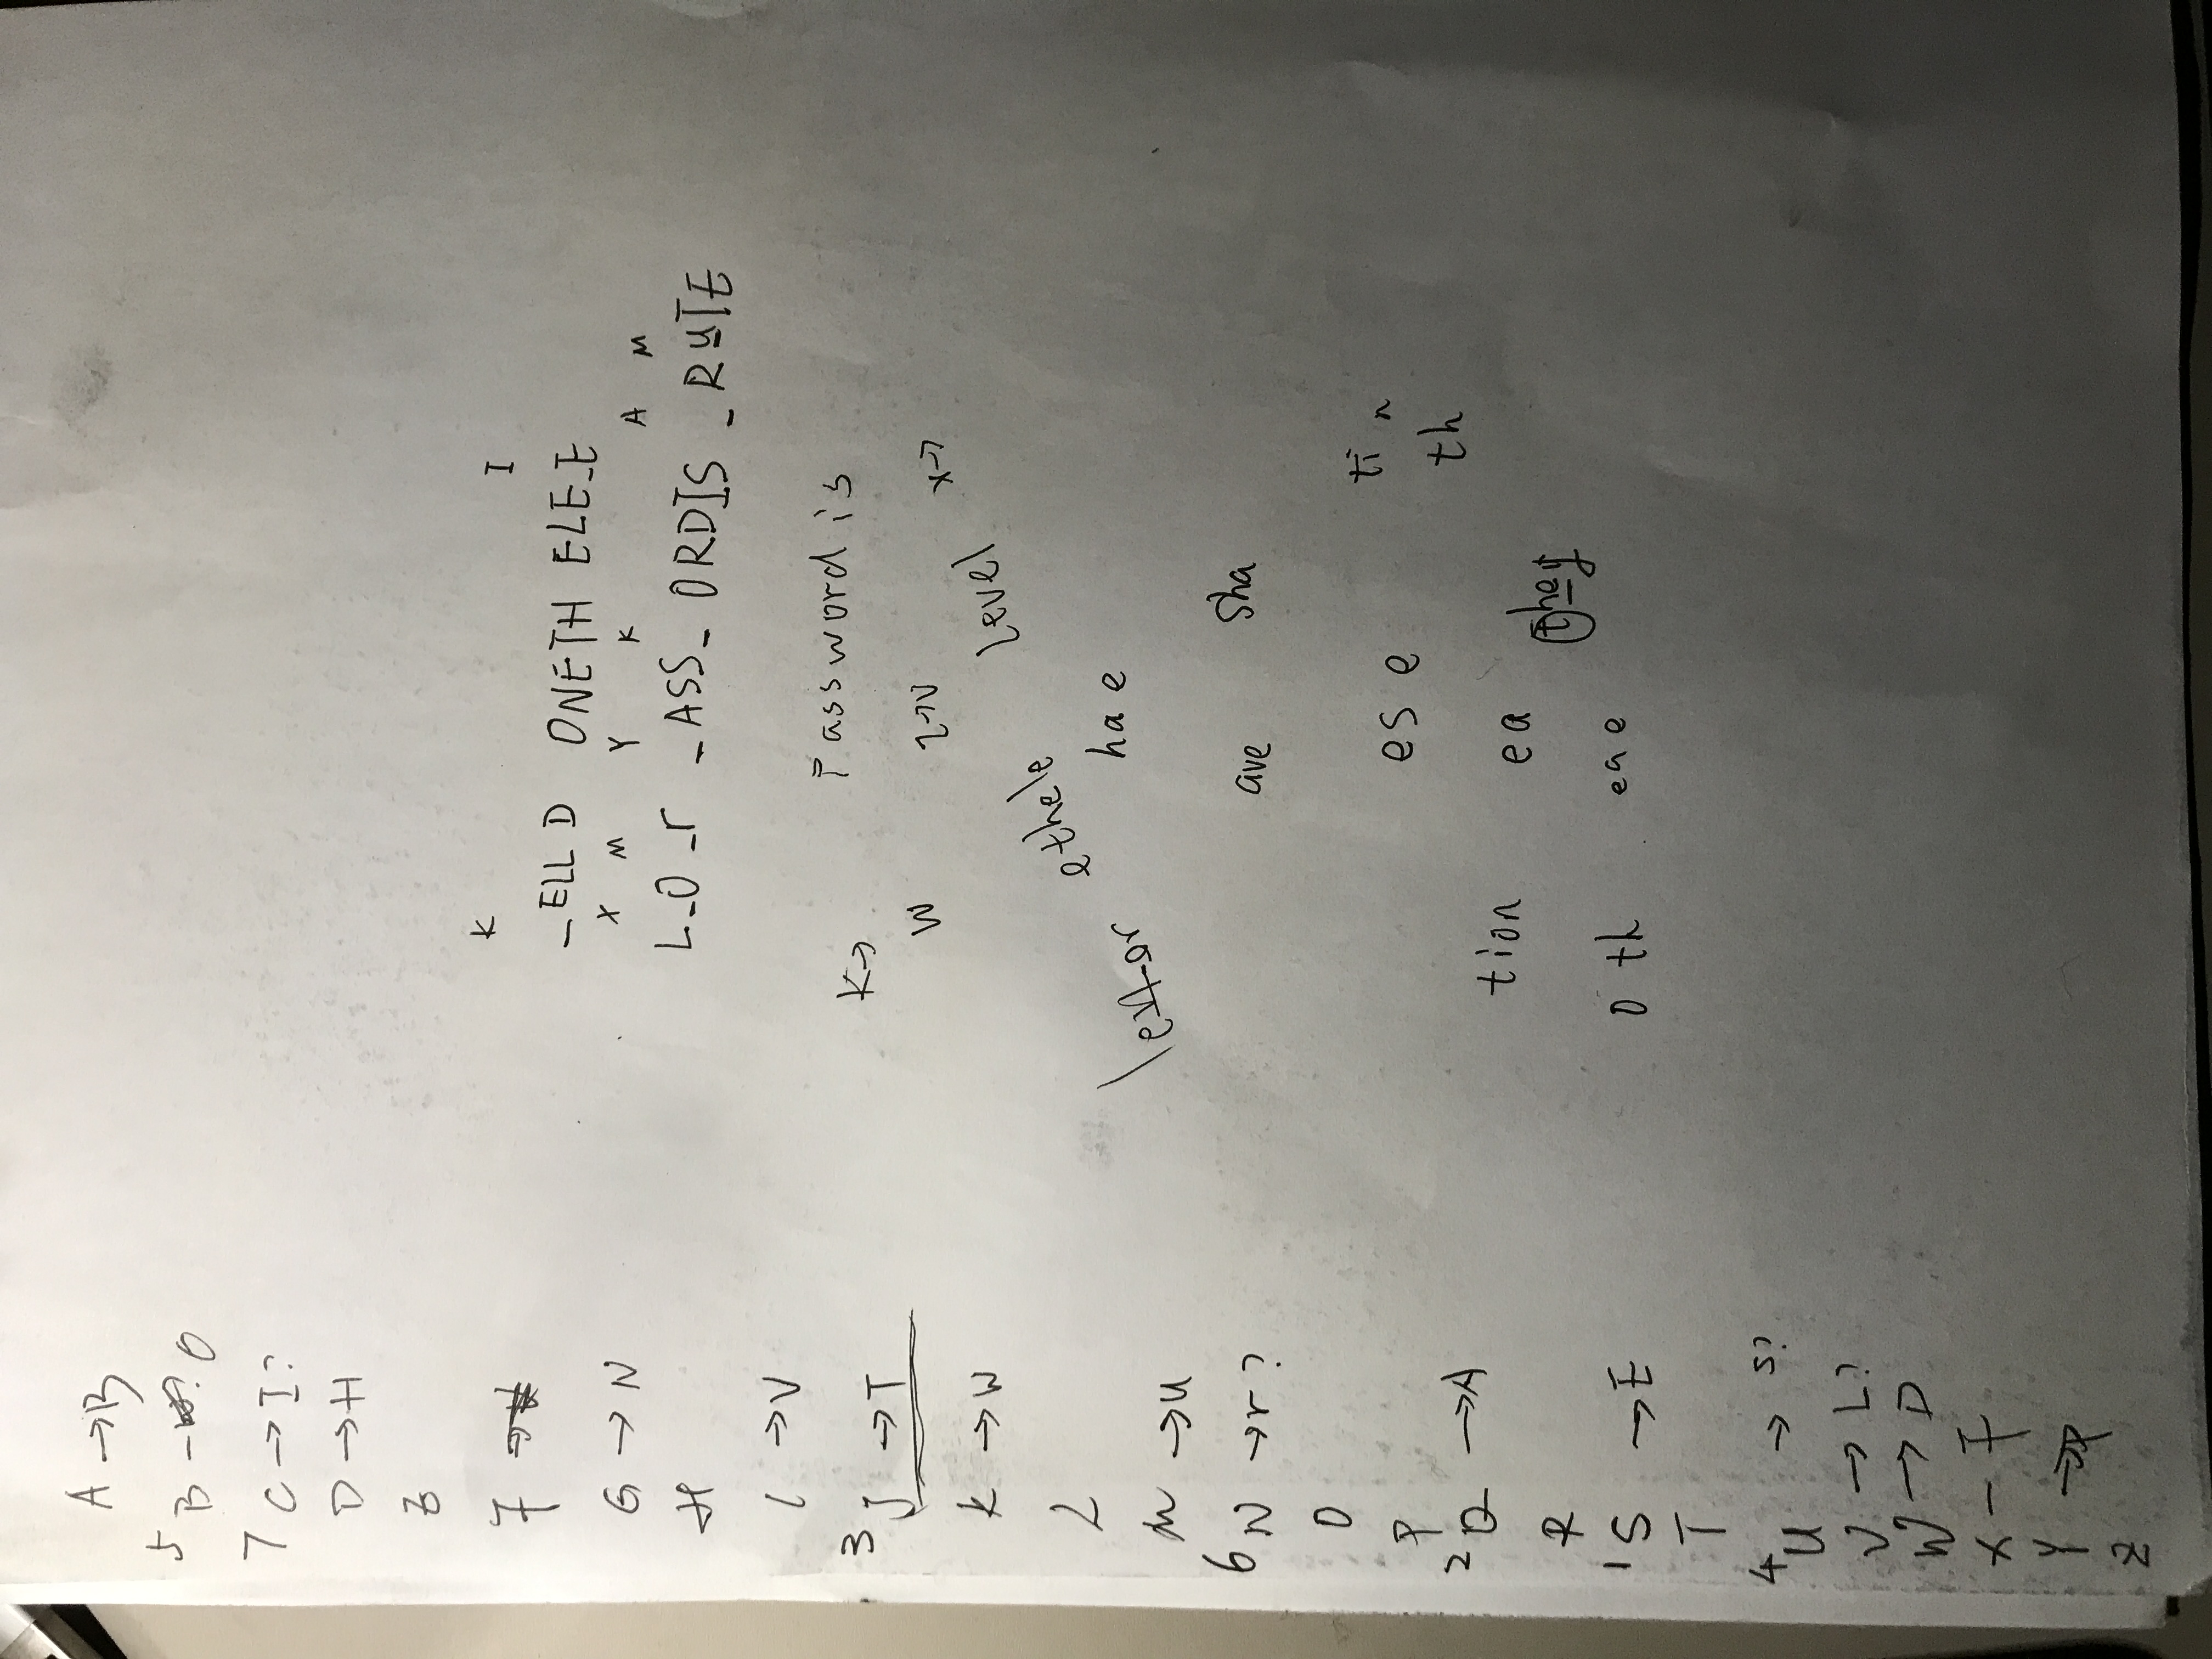 A → B
5 B – O
7 C → I?
D → H
E
F →
G → N
H
I → V
3 J → T
K → W
L
M → U
6 N → r?
O
P
2 Q → A
R
1 S → E
T
4 U → s?
V → L?
W → D
X – F
Y → P
Z
K I
_ELL D ONETH ELE_E
X M Y K A M
L_O_r _ASS_ ORDIS _RUTE
Password is
K→
W I→V x→
level
ethele
hae
ave sha
ese ti n
th
tion ea they
o th eae